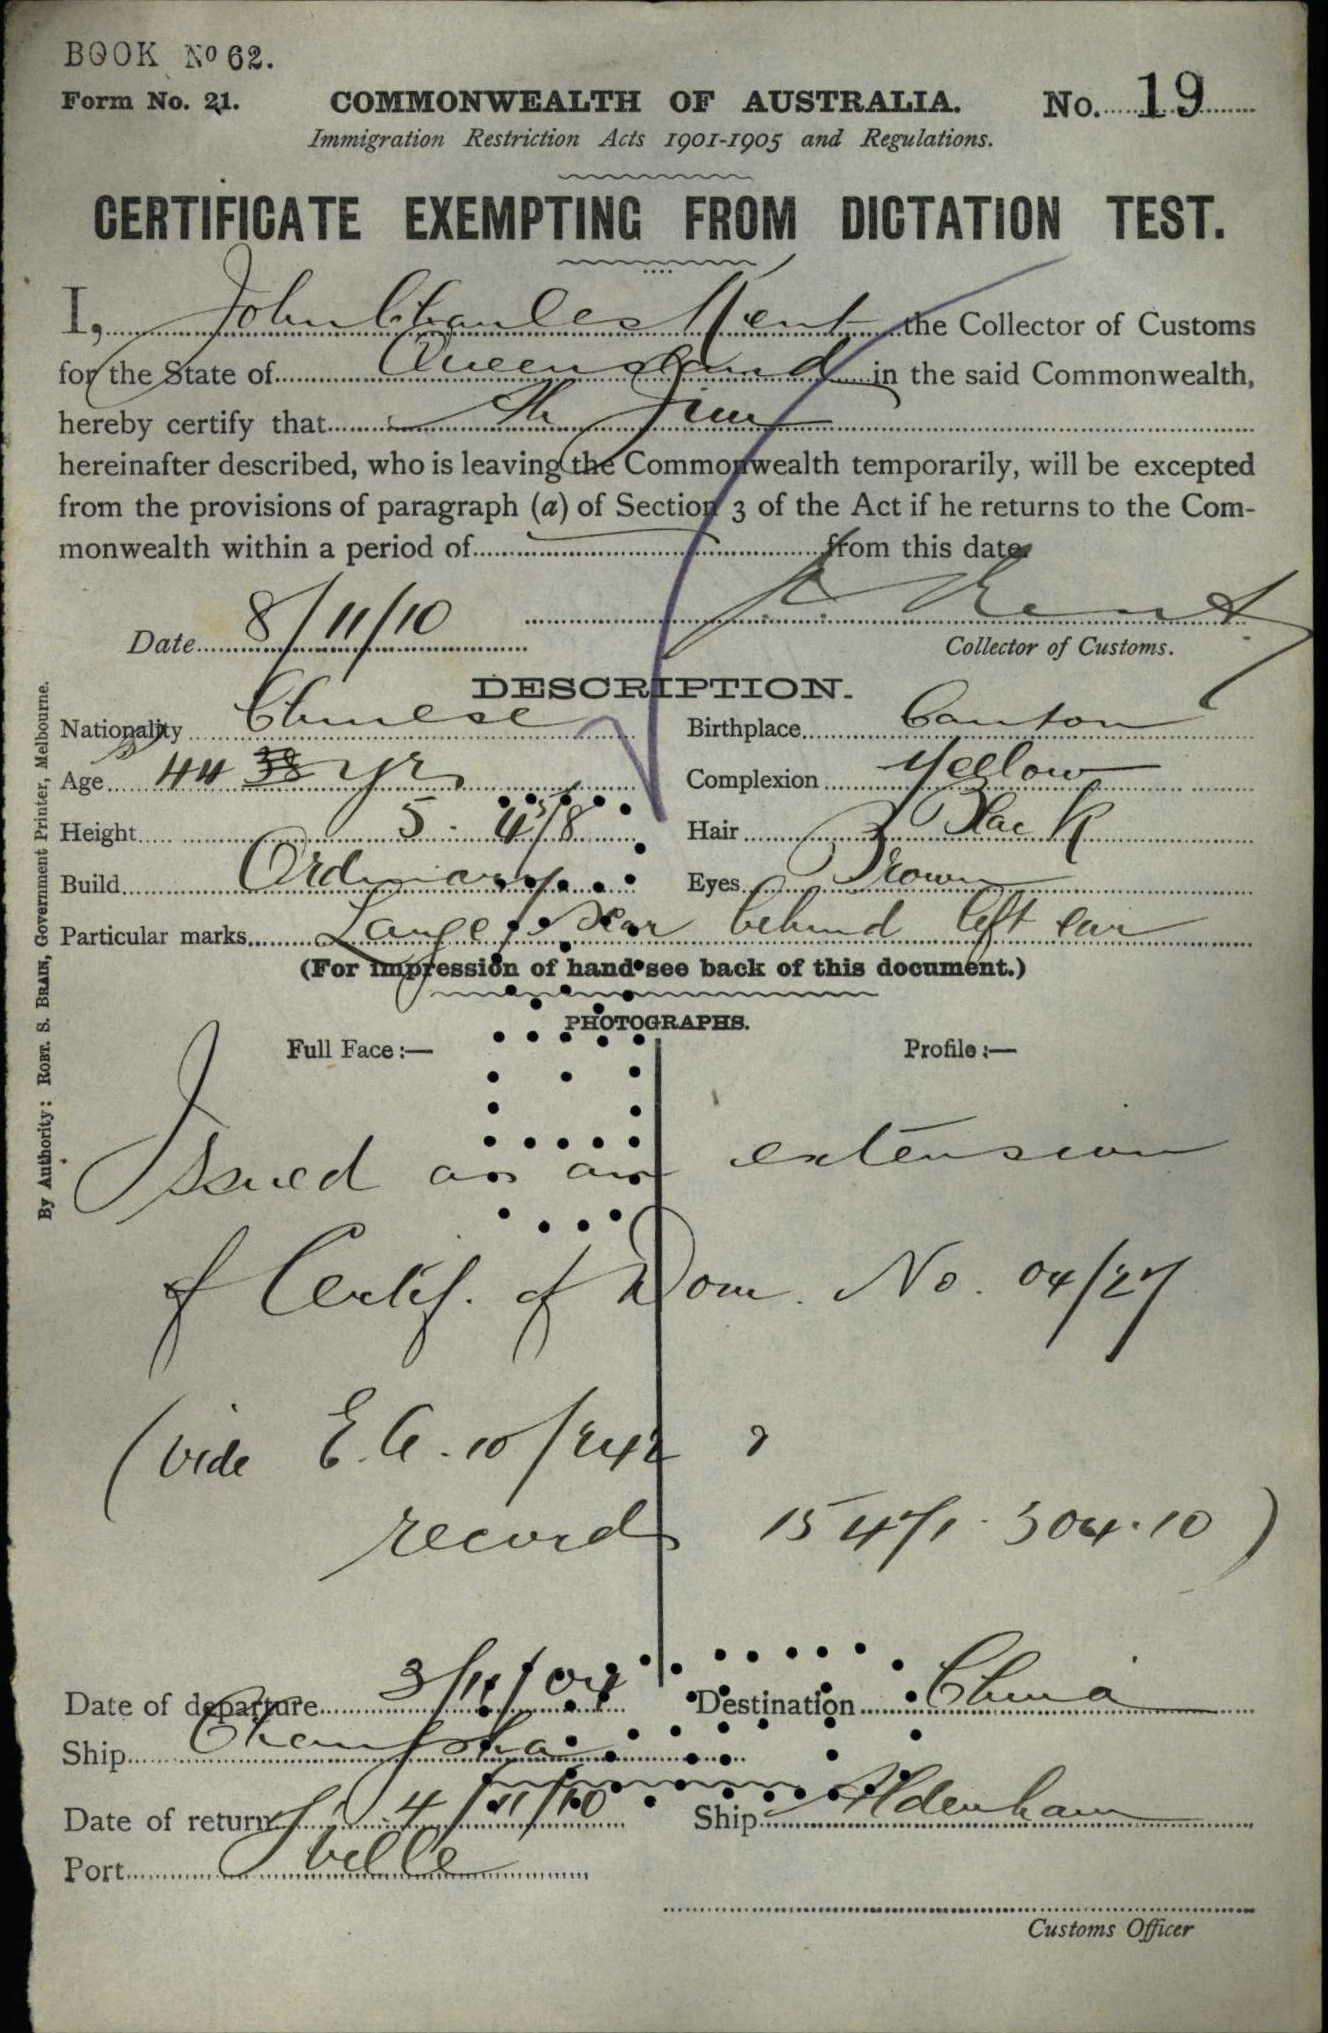 BOOK No 62.
Form No. 21.
COMMONWEALTH OF AUSTRALIA.
No. 19
Immigration Restriction Acts 1901-1905 and Regulations.
CERTIFICATE EXEMPTING FROM DICTATION TEST.
I, John Charles Kent the Collector of Customs
for the State of Queensland in the said Commonwealth,
hereby certify that Ah
hereinafter described, who is leaving the Commonwealth temporarily, will be excepted
from the provisions of paragraph (a) of Section 3 of the Act if he returns to the Com-
monwealth within a period of from this date.
Date 8/11/10
Kent
Collector of Customs.
DESCRIPTION.
Nationality Chinese
Birthplace Canton
Age 44 38 yrs
Complexion Yellow
Height 5. 4 5/8
Hair Black
Build Ordinary
Eyes Brown
Particular marks Large scar behind left ear
(For impression of hand see back of this document.)
PHOTOGRAPHS.
Full Face :—
Profile :—
Issued as an extension
of Certif. of Dom. No. 04/27
(vide E.C. 10/242 &
records 15471. 304.10)
Date of departure 3/11/04
Destination China
Ship Changsha
Date of return 4/11/10
Ship Aldenham
Port T'ville
Customs Officer
By Authority: ROBT. S. BRAIN, Government Printer, Melbourne.